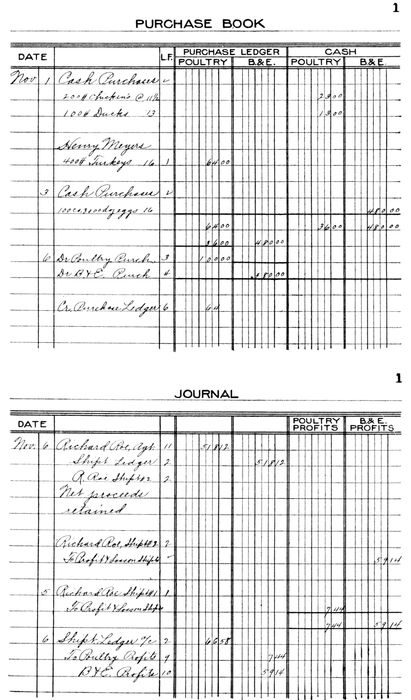 1
PURCHASE BOOK
DATE L.F. PURCHASE LEDGER CASH
POULTRY B.&E. POULTRY B.&E.
Nov 1 Cash Purchases ✓
200# Chickens @ 11½ 23 00
100# Ducks 13 13 00
Henry Meyers
400# Turkeys 16 1 64 00
3 Cash Purchases ✓
eggs 16 480 00
64 00 36 00 480 00
36 00 480 00
6 Dr Poultry Purch. 3 100 00
Dr B & E Purch 4 480 00
Cr. Purchase Ledger 6 64
1
JOURNAL
DATE POULTRY PROFITS B.& E. PROFITS
Nov. 6 Richard Roe, Agt. 11 518 12
Shipt Ledger 2 518 12
R. Roe Shipt #2 2
Net proceeds
retained
Richard Roe, Shipt #2 2
To Profit & Loss on Shipt 59 14
5 Richard Roe Shipt #1 1
To Profit & Loss on Shipt 7 44
7 44 59 14
6 Shipt. Ledger 2 66 58
To Poultry Profits 9 7 44
B & E. Profits 10 59 14